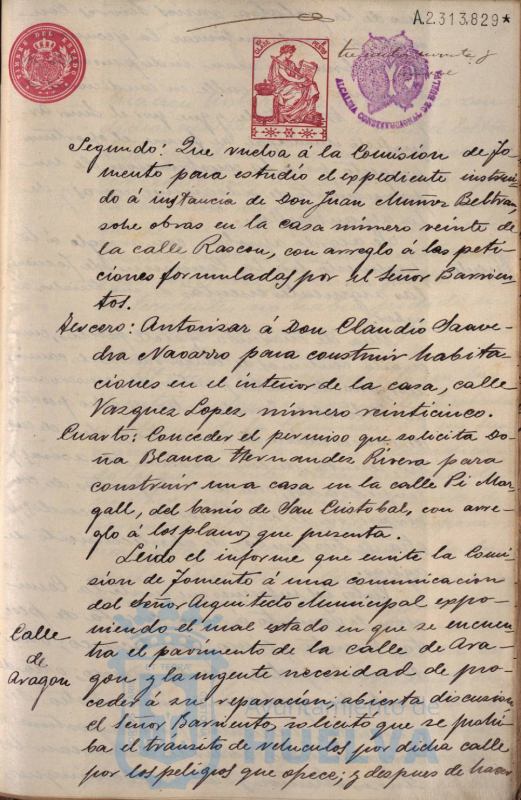 A.2.313.829*
TIMBRE DEL ESTADO
ALCALDIA CONSTITUCIONAL DE HUELVA
Segundo: Que vuelva á la Comision de Fo-
mento para estudio el expediente instrui-
do á instancia de Don Juan Muñoz Beltran,
sobre obras en la casa número veinte de
la calle Rascon, con arreglo á las peti-
ciones formuladas por el Señor Barrien-
tos.
Tercero: Autorizar á Don Claudio Saave-
dra Navarro para construir habita-
ciones en el interior de la casa, calle
Vazquez Lopez número veinticinco.
Cuarto: Conceder el permiso que solicita Do-
ña Blanca Hernandez Rivera para
construir una casa en la calle Pi Mar-
gall, del barrio de San Cristobal, con arre-
glo á los planos que presenta.
Leido el informe que emite la Comi-
sion de Fomento á una comunicacion
del Señor Arquitecto Municipal expo-
niendo el mal estado en que se encuen-
tra el pavimento de la calle de Ara-
gon y la urgente necesidad de pro-
ceder á su reparación, abierta discusion
el Señor Barriento, solicitó que se prohi-
ba el transito de vehiculos por dicha calle
por los peligros que ofrece; y despues de hacer
Calle
de
Aragon
Ayuntamiento de
HUELVA